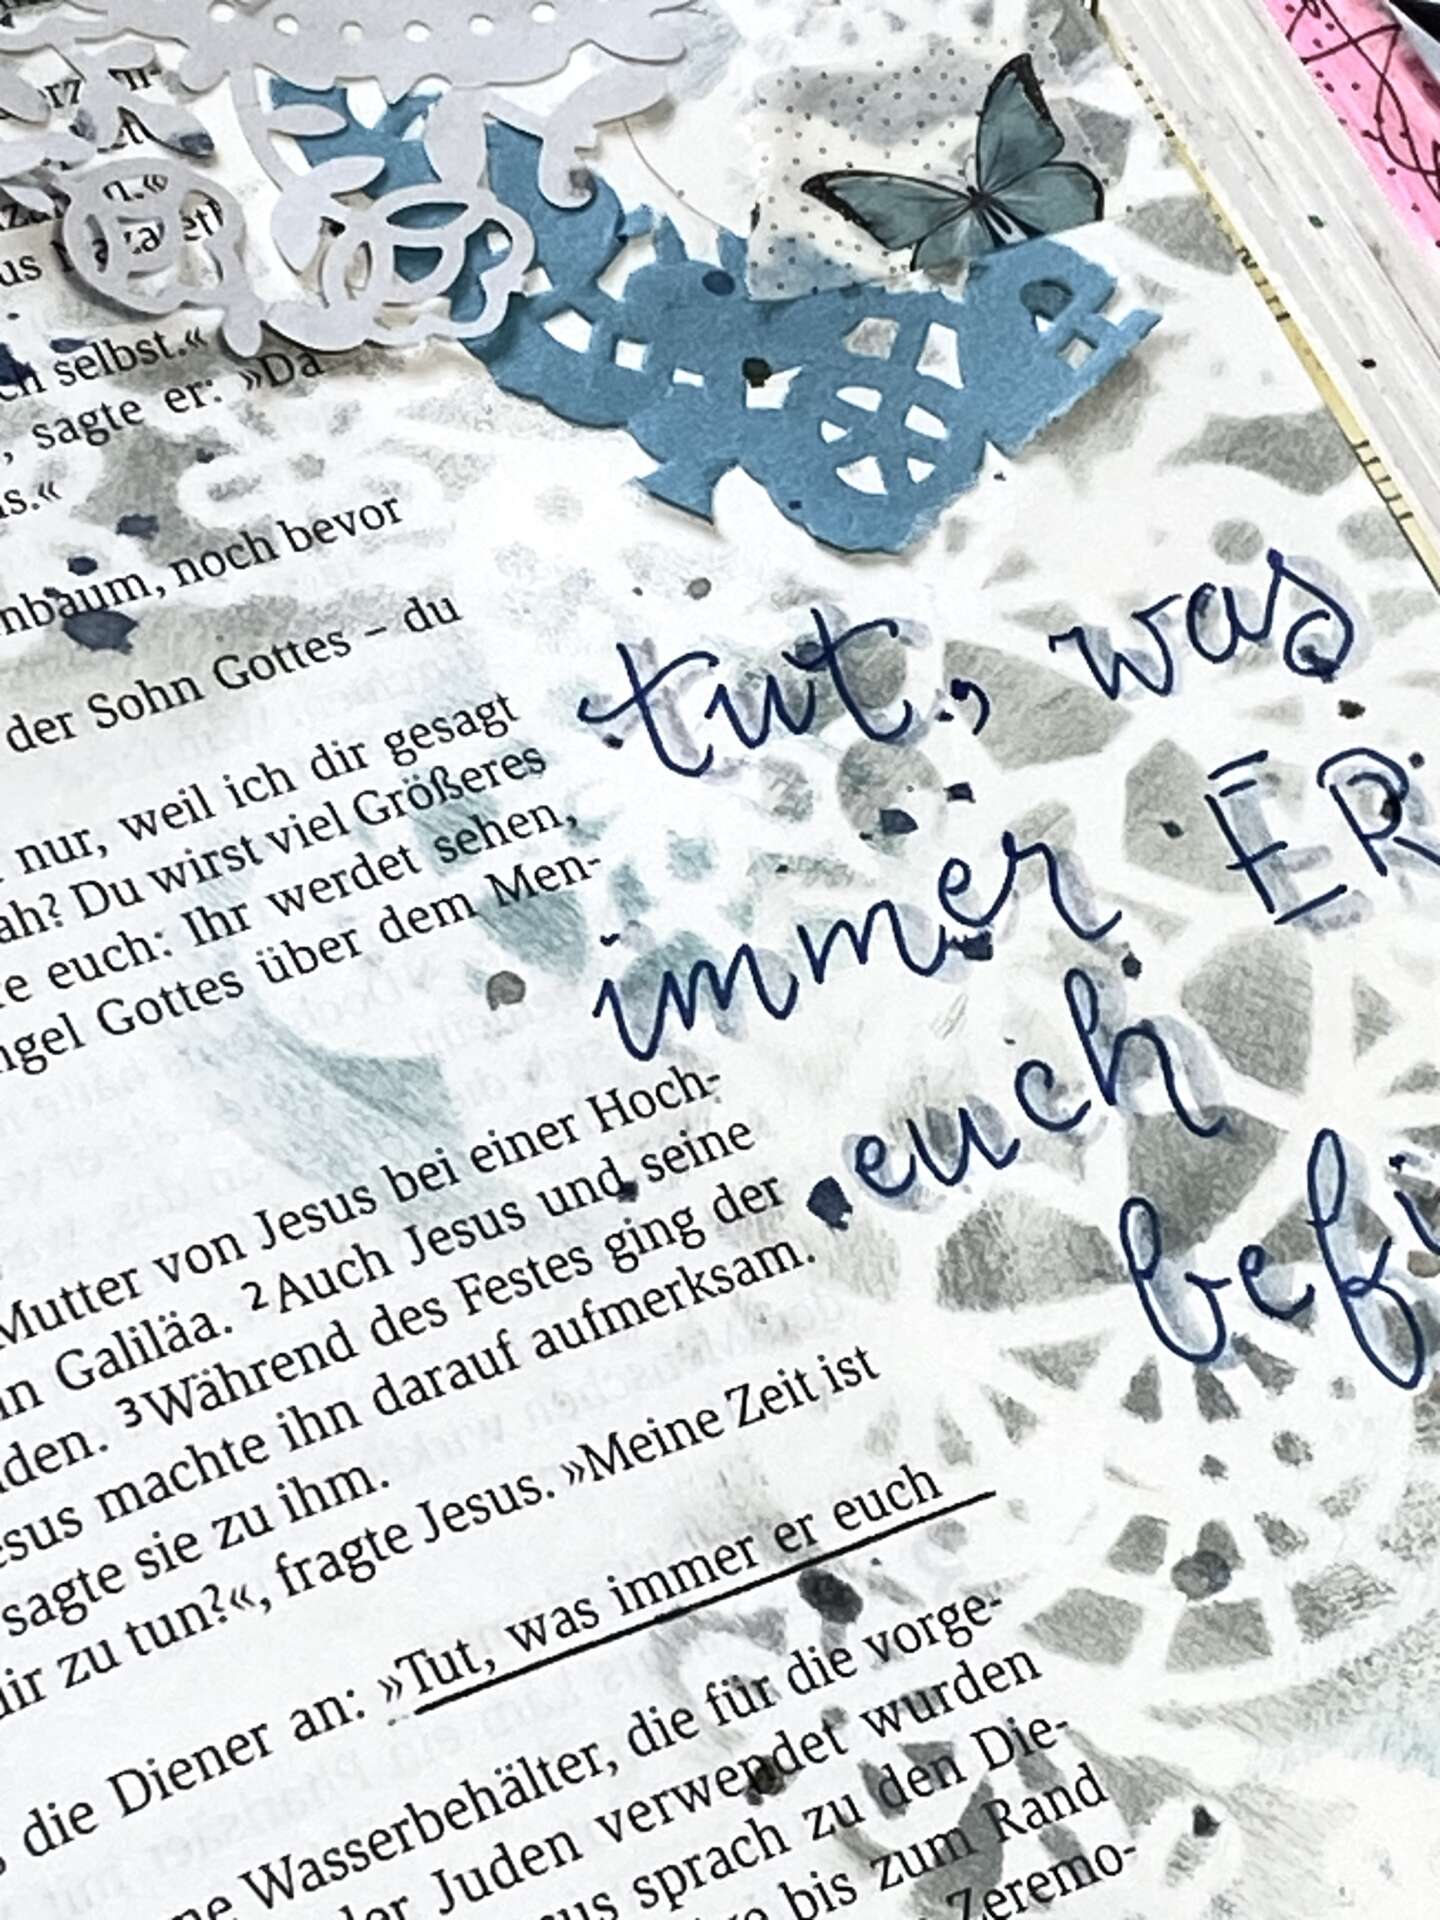 us Nazareth
ch selbst.«
, sagte er: »Da
s.«
nbaum, noch bevor
der Sohn Gottes – du
nur, weil ich dir gesagt
ah? Du wirst viel Größeres
e euch: Ihr werdet sehen,
ngel Gottes über dem Men-
Mutter von Jesus bei einer Hoch-
in Galiläa. ²Auch Jesus und seine
aden. ³Während des Festes ging der
esus machte ihn darauf aufmerksam.
sagte sie zu ihm.
dir zu tun?«, fragte Jesus. »Meine Zeit ist
s die Diener an: »Tut, was immer er euch
ne Wasserbehälter, die für die vorge-
der Juden verwendet wurden
sus sprach zu den Die-
bis zum Rand
Zeremo-
tut, was
immer ER
euch
befi